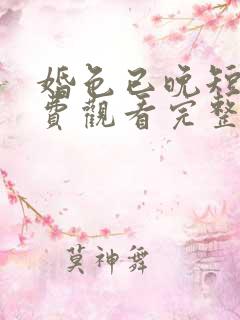 婚色已晚短
費觀看完整
莫神舞